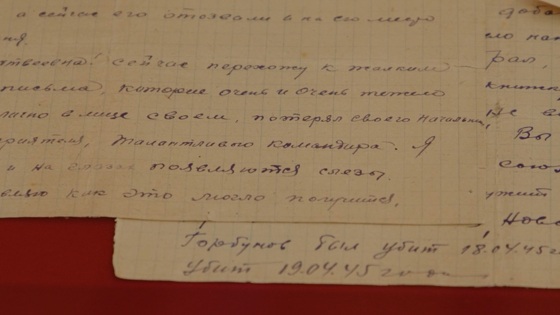 а сейчас его отозвали и на его место
ня.
сейчас перехожу к жалким
письма, которые очень и очень тяжело
лично в лице своем, потерял своего начальни,
приятеля, талантливого командира. Я
и на глазах появляются слезы.
как это могло получится,
Горбунов был убит 18.04.45
убит 19.04.45 года
рал,
книжк
не в
Вы
союз
ужит
Ново